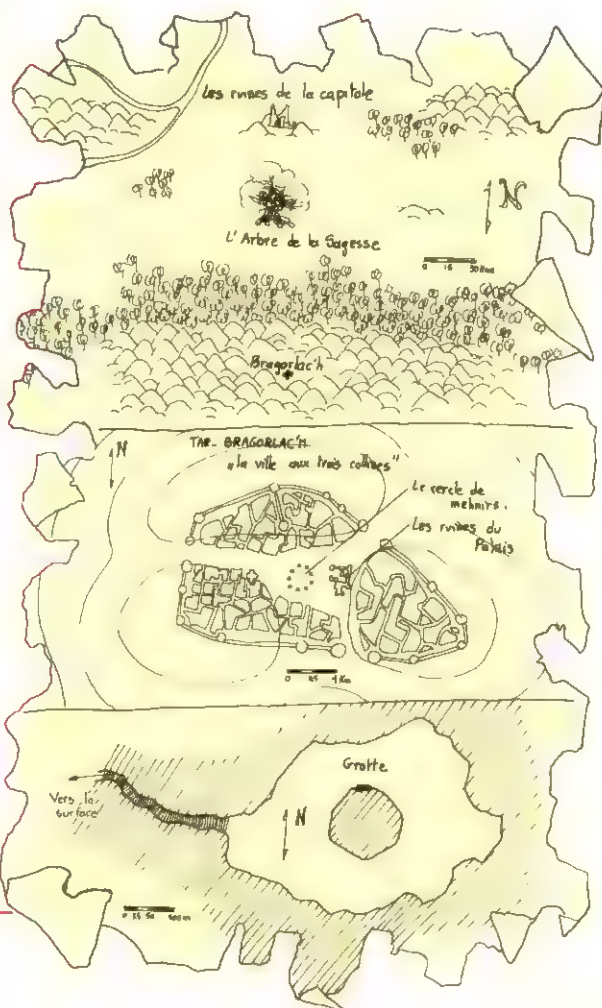 Les ruines de la capitole
N
L'Arbre de la Sagesse
0 15 30 Km
Bragorlac'h
N
TAR-BRAGORLAC'H
"la ville aux trois collines"
Le cercle de
mehnirs.
Les ruines du
Palais
0 1 Km
Grotte
Vers la
surface
N
0 25 50 100m